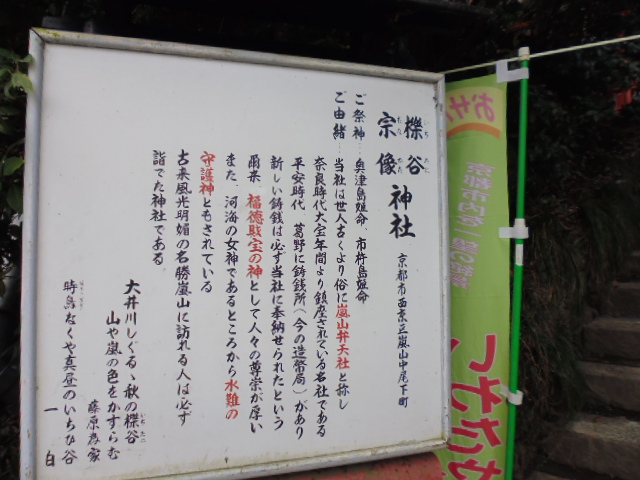 櫟谷 いちたに
宗像 むなかた
神社
京都市西京区嵐山中尾下町
ご祭神…奥津島姫命、市杵島姫命
ご由緒…当社は世人古くより俗に嵐山弁天社と称し
奈良時代大宝年間より鎮座されている名社である
平安時代 葛野に鋳銭所(今の造幣局)があり
新しい鋳銭は必ず当社に奉納せられたという
爾来 福徳財宝の神として人々の尊崇が厚い
また、河海の女神であるところから水難の
守護神ともされている
古来風光明媚の名勝嵐山に訪れる人は必ず
詣でた神社である
大井川しぐるゝ秋の櫟谷 いちたに
山や嵐の色をかすらむ
藤原為家
時鳥なくや真昼のいちひ谷
一白
いわたや